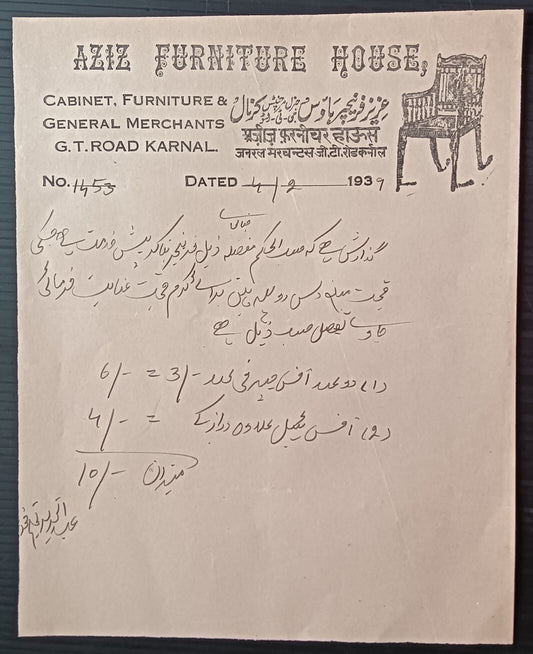 AZIZ FURNITURE HOUSE,
CABINET, FURNITURE &
GENERAL MERCHANTS
G.T. ROAD KARNAL.
عزیز فرنیچر ہاؤس جنرل مرچنٹس جی۔ٹی۔روڈ کرنال
अज़ीज़ फ़रनीचर हाऊस
जनरल मरचन्टस जी.टी.रोड कर्नाल
No. 1453 DATED 4/2 1939
جنابِ
گذارش ہے کہ حسب الحکم مفصلہ ذیل فرنیچر بنا کر پیش خدمت ہے جسکی
قیمت مبلغ دس روپیہ براہ کرم عنایت فرمائی
جاوے تفصیل حسب ذیل ہے
(۱) دو عدد آفس چیر فی عدد 3/- = 6/-
(۲) آفس ٹیبل علاوہ دراز کے = 4/-
میزان 10/-